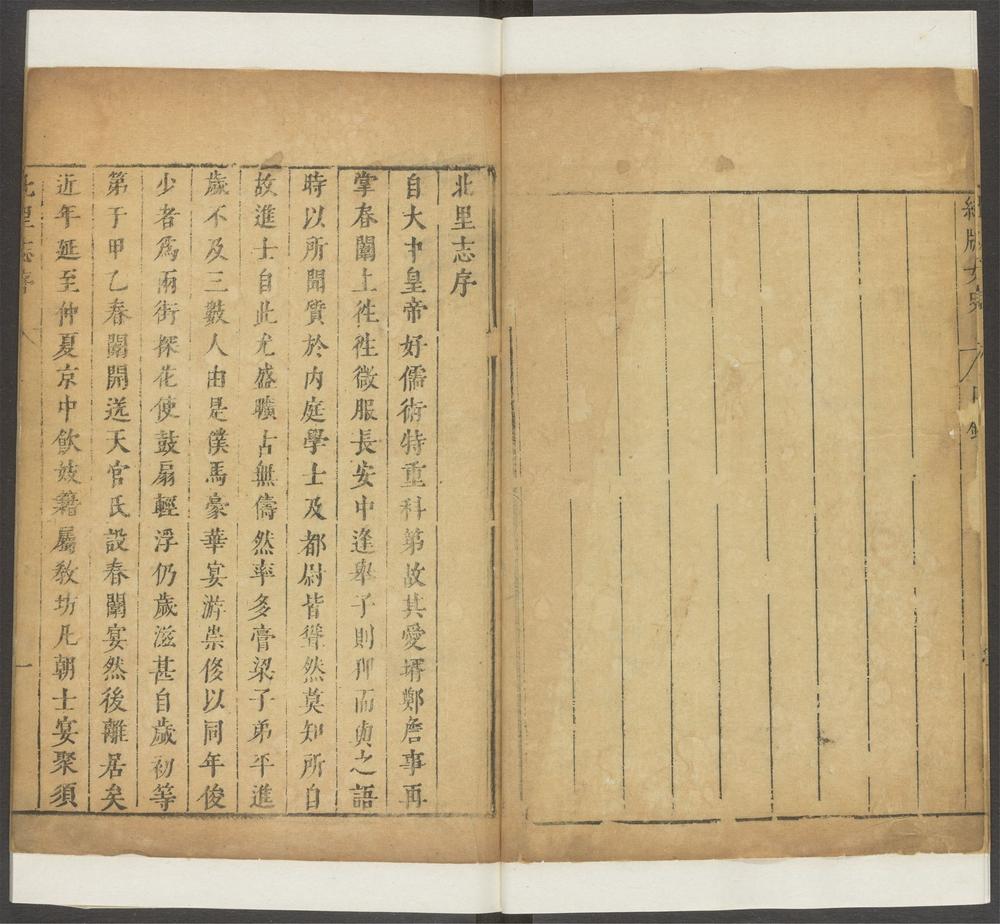 北里志序
自大中皇帝好儒術特重科第故其愛壻鄭詹事再
掌春闈上徃徃微服長安中逢舉子則狎而與之語
時以所聞質於内庭學士及都尉皆聳然莫知所自
故進士自此尤盛曠古無儔然率多膏粱子弟平進
歲不及三數人由是僕馬豪華宴游崇侈以同年俊
少者爲兩街探花使鼓扇輕浮仍歲滋甚自歲初等
第于甲乙春闈開送天官氏設春闈宴然後離居矣
近年延至仲夏京中飲妓籍屬教坊凡朝士宴聚須
北里志序 一